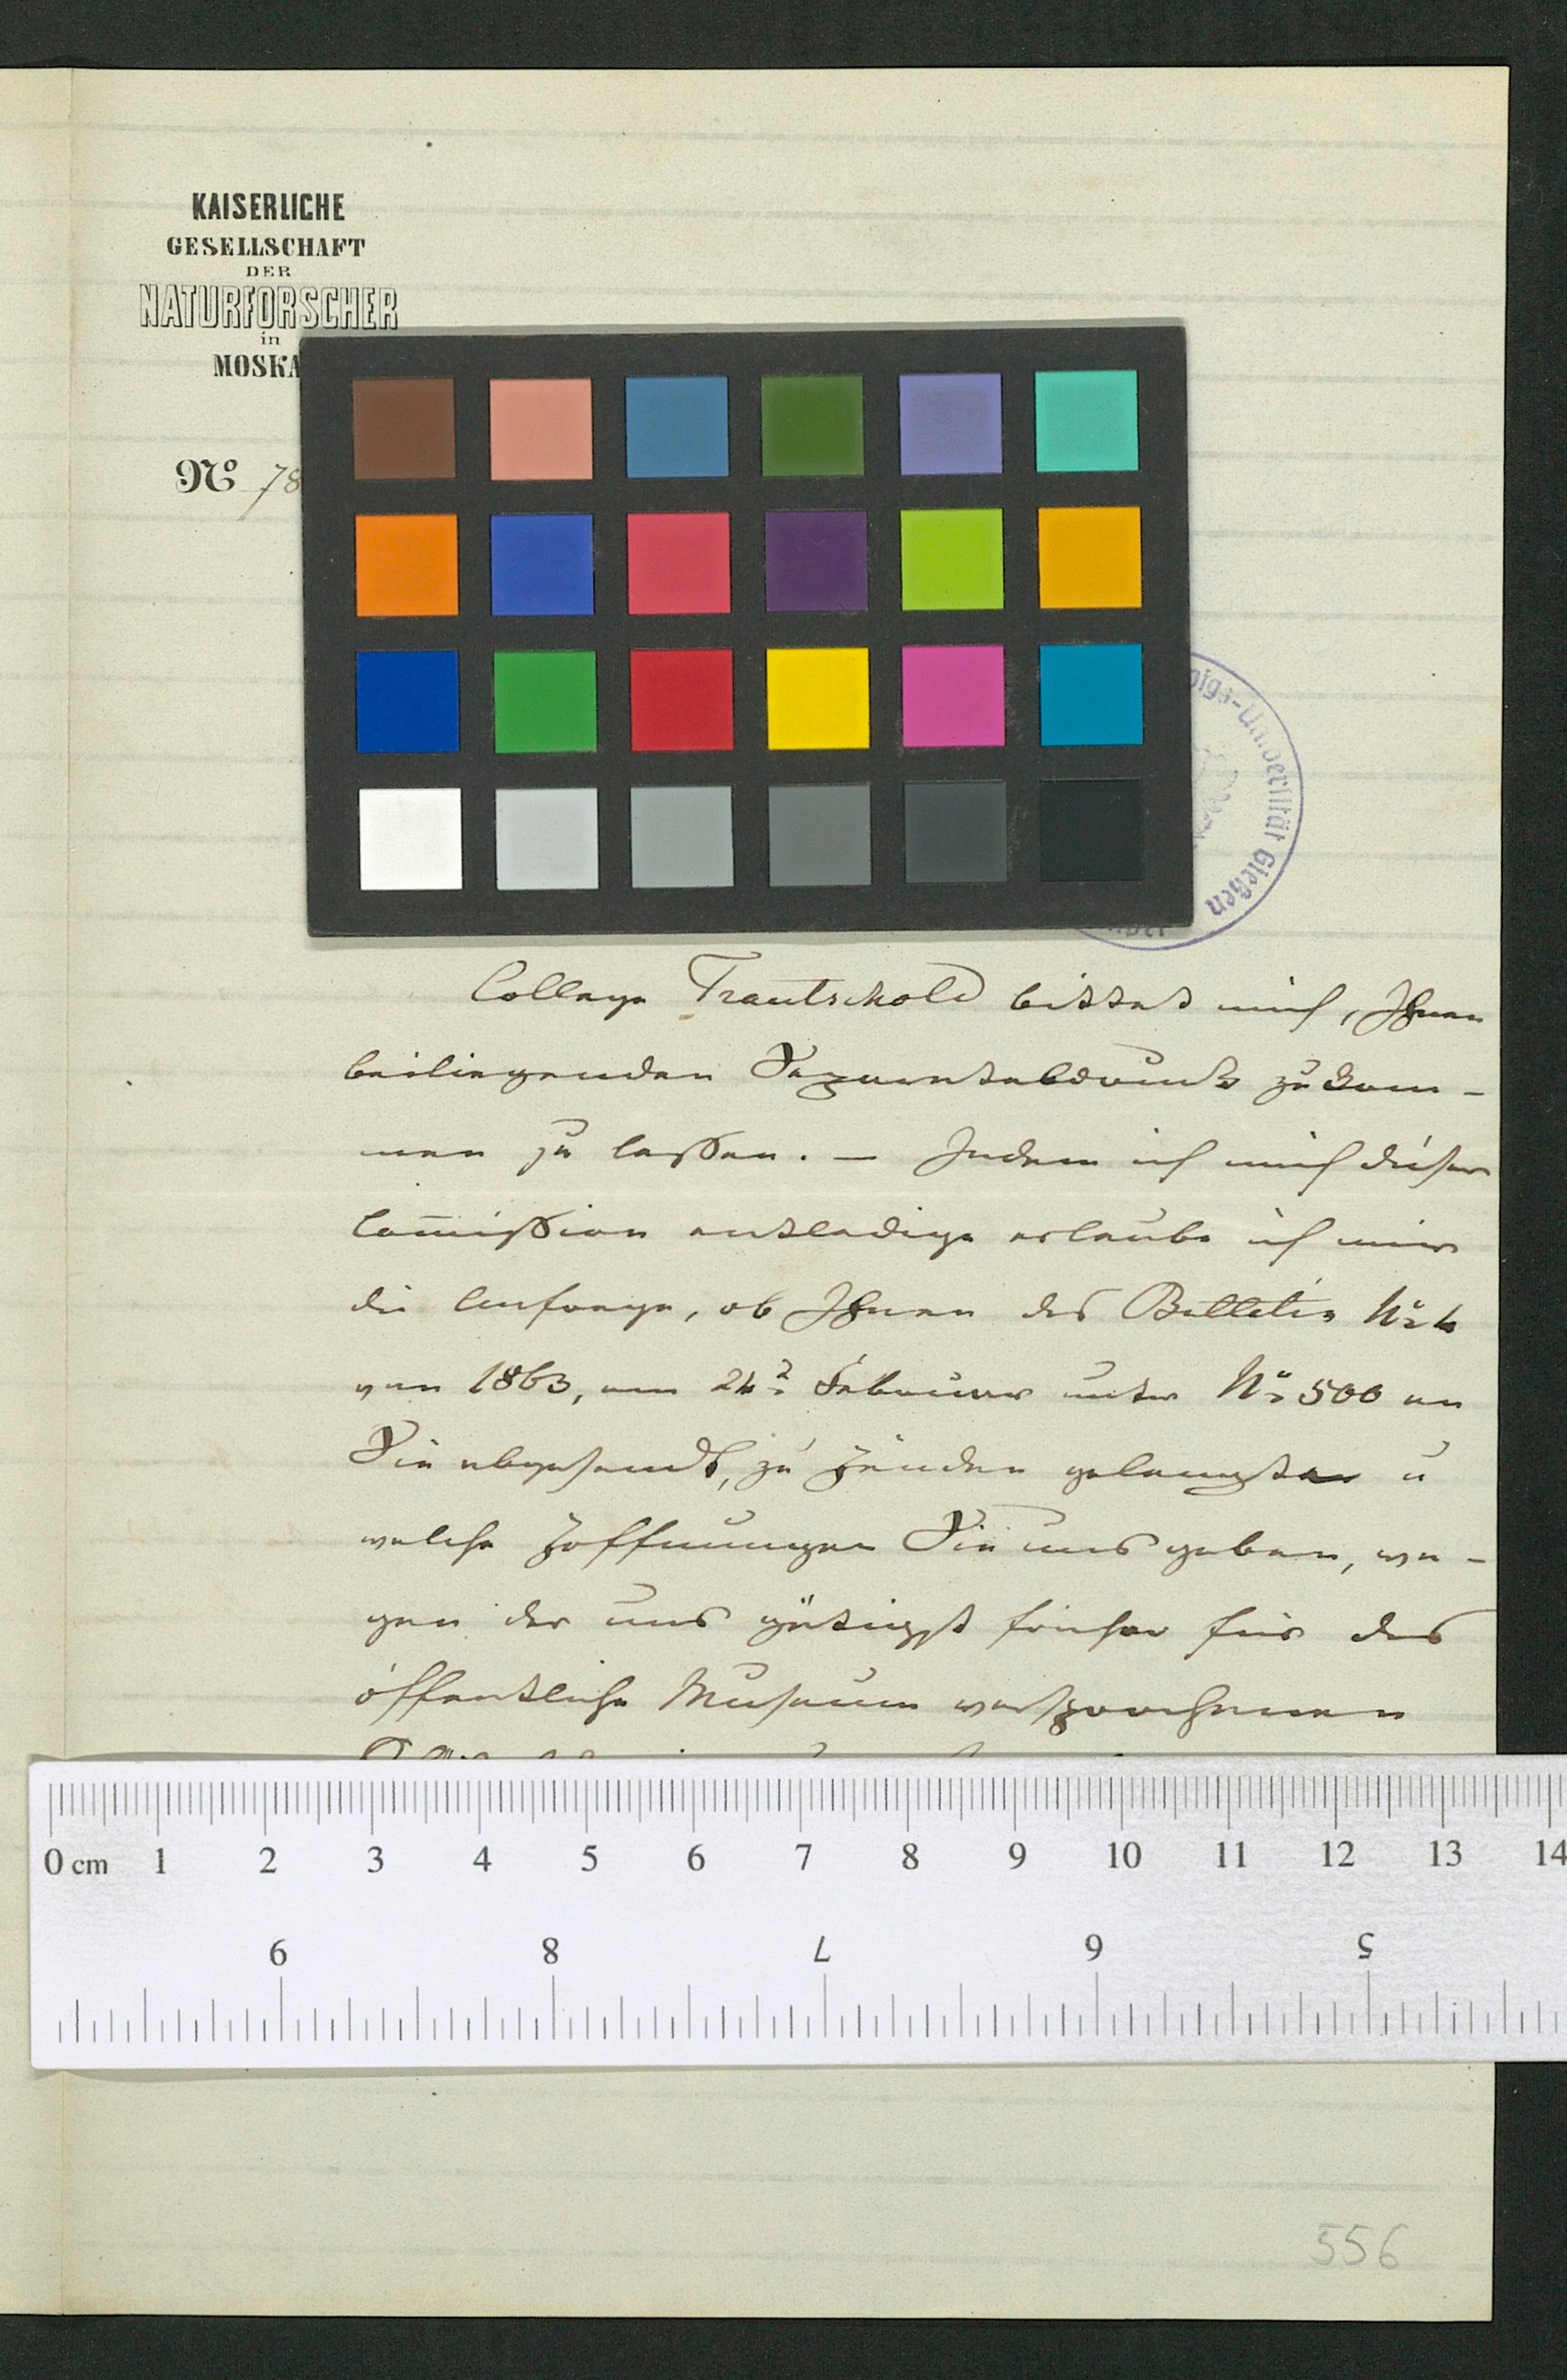 KAISERLICHE
GESELLSCHAFT
DER
NATURFORSCHER
in
MOSKA
No 78
igs-Universität Gießen
College Trautschold bittet mich, Ihnen
beiliegenden Separatabdruck zukom-
men zu lassen. — Indem ich mich dieser
Com̄ission entledige erlaube ich mir
die Anfrage, ob Ihnen das Bulletin No 4
von 1863, am 24 Februar unter No 500 an
Sie abgesandt, zu Händen gelangte u
welche Hoffnungen Sie uns geben, we-
gen der uns gütigst früher für das
öffentliche Museum versprochenen
0 cm 1 2 3 4 5 6 7 8 9 10 11 12 13 14
9 8 7 6 5
556